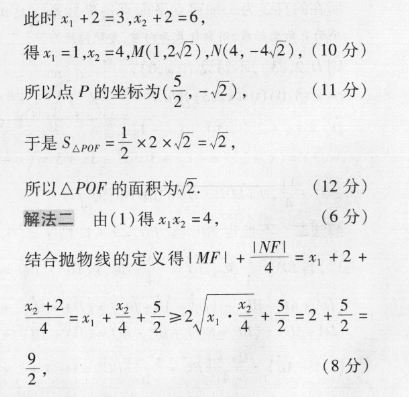 此时 x₁ + 2 = 3, x₂ + 2 = 6,
得 x₁ = 1, x₂ = 4, M(1, 2√2), N(4, -4√2), (10 分)
所以点 P 的坐标为(5/2, -√2), (11 分)
于是 S△POF = 1/2 × 2 × √2 = √2,
所以△POF 的面积为√2. (12 分)
解法二 由(1)得 x₁x₂ = 4, (6 分)
结合抛物线的定义得|MF| + |NF|/4 = x₁ + 2 +
(x₂ + 2)/4 = x₁ + x₂/4 + 5/2 ≥ 2√(x₁ · x₂/4) + 5/2 = 2 + 5/2 =
9/2, (8 分)